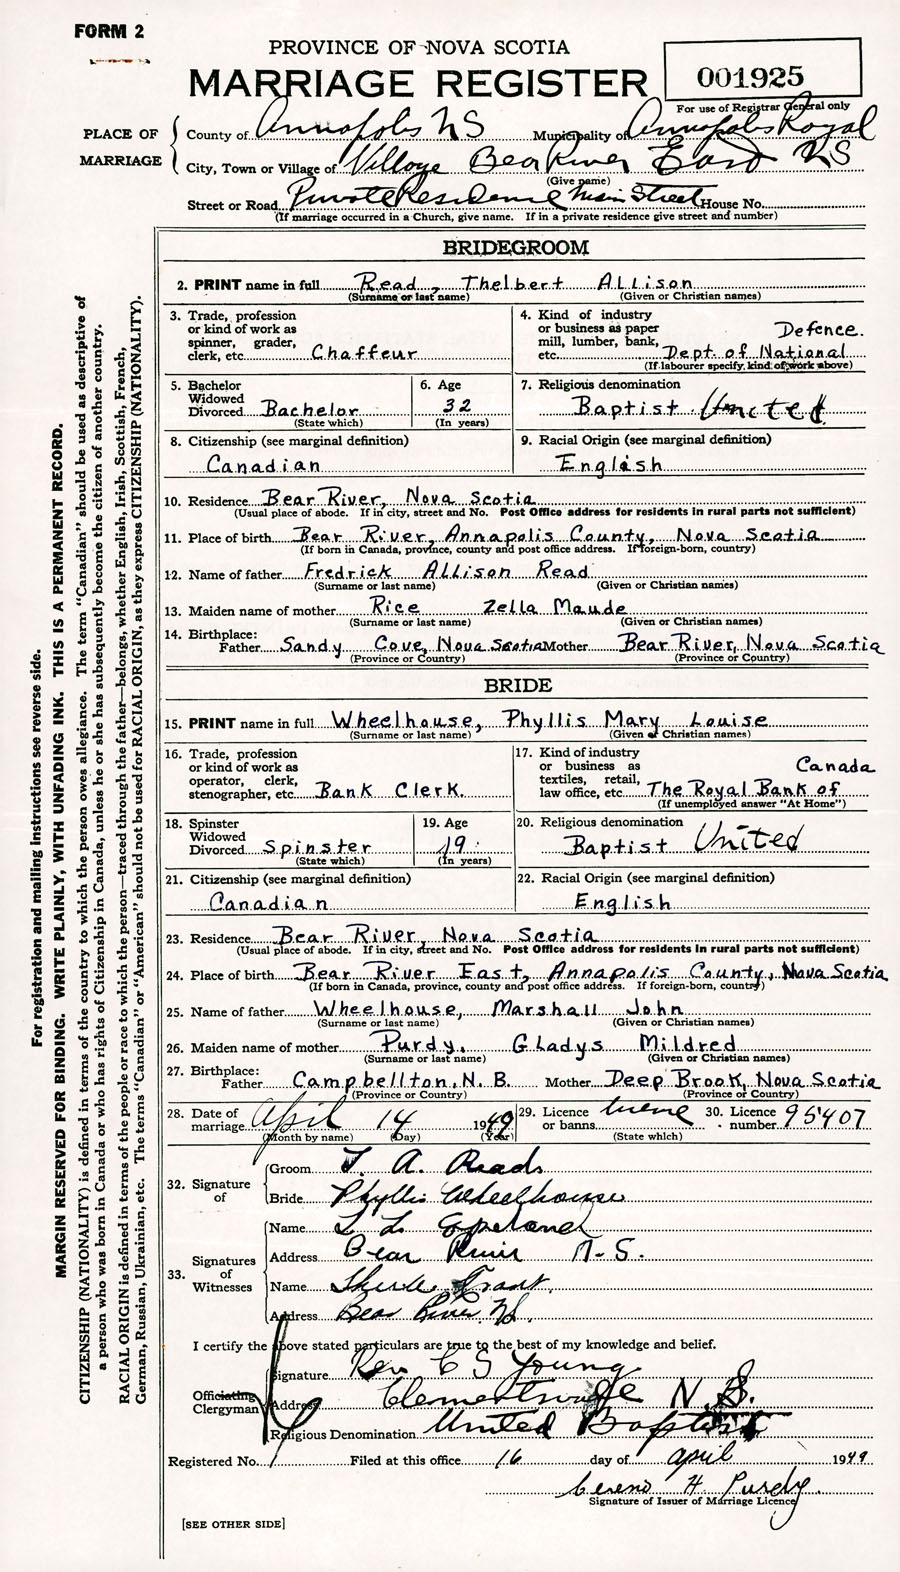 FORM 2
PROVINCE OF NOVA SCOTIA
MARRIAGE REGISTER
001925
For use of Registrar General only
PLACE OF MARRIAGE
County of Annapolis NS Municipality of Annapolis Royal
City, Town or Village of Village Bear River East NS
(Give name)
Street or Road Private Residence Main Street House No.
(If marriage occurred in a Church, give name. If in a private residence give street and number)
BRIDEGROOM
2. PRINT name in full Read, Thelbert Allison
(Surname or last name) (Given or Christian names)
3. Trade, profession
or kind of work as
spinner, grader,
clerk, etc. Chaffeur
4. Kind of industry
or business as paper Defence.
mill, lumber, bank,
etc. Dept. of National
(If labourer specify kind of work above)
5. Bachelor
Widowed
Divorced Bachelor
(State which)
6. Age
32
(In years)
7. Religious denomination
Baptist United
8. Citizenship (see marginal definition)
Canadian
9. Racial Origin (see marginal definition)
English
10. Residence Bear River, Nova Scotia
(Usual place of abode. If in city, street and No. Post Office address for residents in rural parts not sufficient)
11. Place of birth Bear River, Annapolis County, Nova Scotia
(If born in Canada, province, county and post office address. If foreign-born, country)
12. Name of father Fredrick Allison Read
(Surname or last name) (Given or Christian names)
13. Maiden name of mother Rice Zella Maude
(Surname or last name) (Given or Christian names)
14. Birthplace:
Father Sandy Cove, Nova Scotia Mother Bear River, Nova Scotia
(Province or Country) (Province or Country)
BRIDE
15. PRINT name in full Wheelhouse, Phyllis Mary Louise
(Surname or last name) (Given or Christian names)
16. Trade, profession
or kind of work as
operator, clerk,
stenographer, etc. Bank Clerk.
17. Kind of industry
or business as Canada
textiles, retail,
law office, etc. The Royal Bank of
(If unemployed answer "At Home")
18. Spinster
Widowed
Divorced Spinster
(State which)
19. Age
19
(In years)
20. Religious denomination
Baptist United
21. Citizenship (see marginal definition)
Canadian
22. Racial Origin (see marginal definition)
English
23. Residence Bear River, Nova Scotia
(Usual place of abode. If in city, street and No. Post Office address for residents in rural parts not sufficient)
24. Place of birth Bear River East, Annapolis County, Nova Scotia
(If born in Canada, province, county and post office address. If foreign-born, country)
25. Name of father Wheelhouse, Marshall John
(Surname or last name) (Given or Christian names)
26. Maiden name of mother Purdy, Gladys Mildred
(Surname or last name) (Given or Christian names)
27. Birthplace:
Father Campbellton, N. B. Mother Deep Brook, Nova Scotia
(Province or Country) (Province or Country)
28. Date of
marriage April 14 1949
(Month by name) (Day) (Year)
29. Licence
or banns
(State which)
30. Licence
number 95407
32. Signature of
Groom T. A. Read
Bride Phyllis Wheelhouse
33. Signatures of Witnesses
Name L L Copeland
Address Bear River N.S.
Name Grant
Address Bear River, NS.
I certify the above stated particulars are true to the best of my knowledge and belief.
Officiating Clergyman
Signature Rev C S Young
Address Clementsvale N.S.
Religious Denomination United Baptist
Registered No. Filed at this office 16 day of April 1949
H. Purdy
Signature of Issuer of Marriage Licence
[SEE OTHER SIDE]
For registration and mailing instructions see reverse side.
MARGIN RESERVED FOR BINDING. WRITE PLAINLY, WITH UNFADING INK. THIS IS A PERMANENT RECORD.
CITIZENSHIP (NATIONALITY) is defined in terms of the country to which the person owes allegiance. The term "Canadian" should be used as descriptive of
a person who was born in Canada or who has rights of Citizenship in Canada, unless he or she has subsequently become the citizen of another country.
RACIAL ORIGIN is defined in terms of the people or race to which the person—traced through the father—belongs, whether English, Irish, Scottish, French,
German, Russian, Ukrainian, etc. The terms "Canadian" or "American" should not be used for RACIAL ORIGIN, as they express CITIZENSHIP (NATIONALITY).